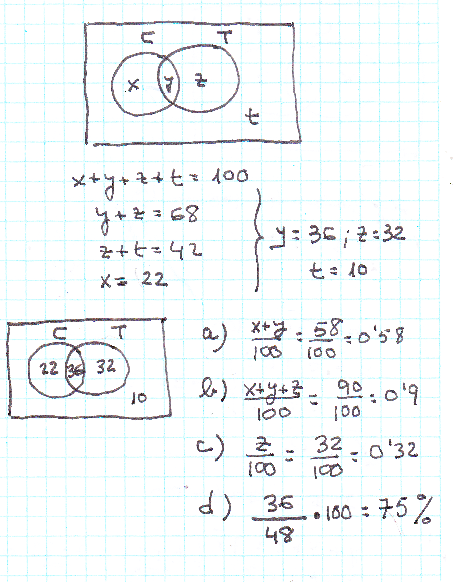 C T
x y z
t
x+y+z+t=100
y+z=68
z+t=42
x=22
y=36; z=32
t=10
C T
22 36 32
10
a) x+y/100 = 58/100 = 0'58
b) x+y+z/100 = 90/100 = 0'9
c) z/100 = 32/100 = 0'32
d) 36/48 · 100 = 75%